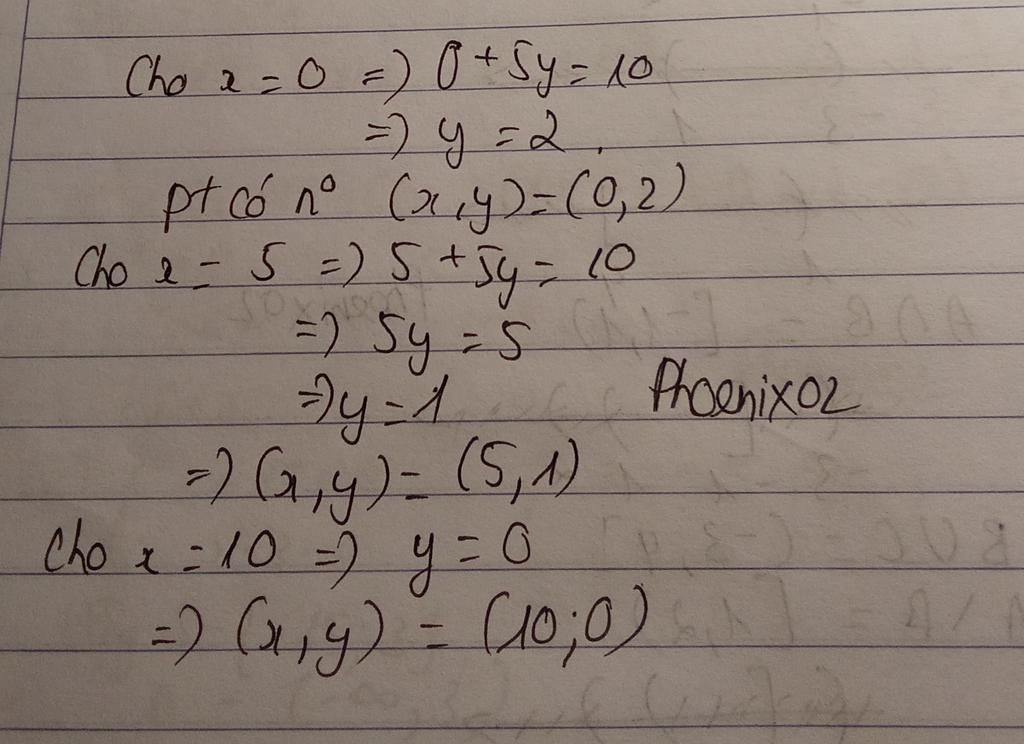 Cho x = 0 => 0 + 5y = 10
=> y = 2.
pt có nº (x,y) = (0,2)
Cho x = 5 => 5 + 5y = 10
=> 5y = 5
=> y = 1
Phoenix02
=> (x,y) = (5,1)
Cho x = 10 => y = 0
=> (x,y) = (10;0)